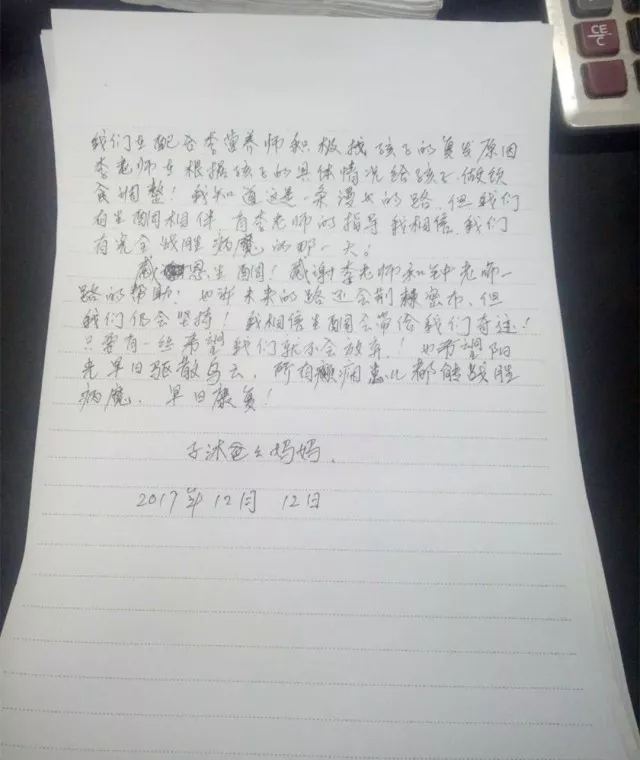 CE/C
我们在配合李营养师积极找孩子的复发原因
李老师在根据孩子的具体情况给孩子做饮
食调整！我知道这是一条漫长的路，但我们
有生酮相伴，有李老师的指导我相信，我们
有完全战胜病魔的那一天。
感恩生酮！感谢李老师和老师一
路的帮助！也许未来的路还会荆棘密布，但
我们仍会坚持！我相信生酮会带给我们奇迹！
只要有一丝希望我们就不会放弃！也希望阳
光早日驱散乌云，所有癫痫患儿都能战胜
病魔，早日康复！
子沐爸爸妈妈.
2017年12月 12日